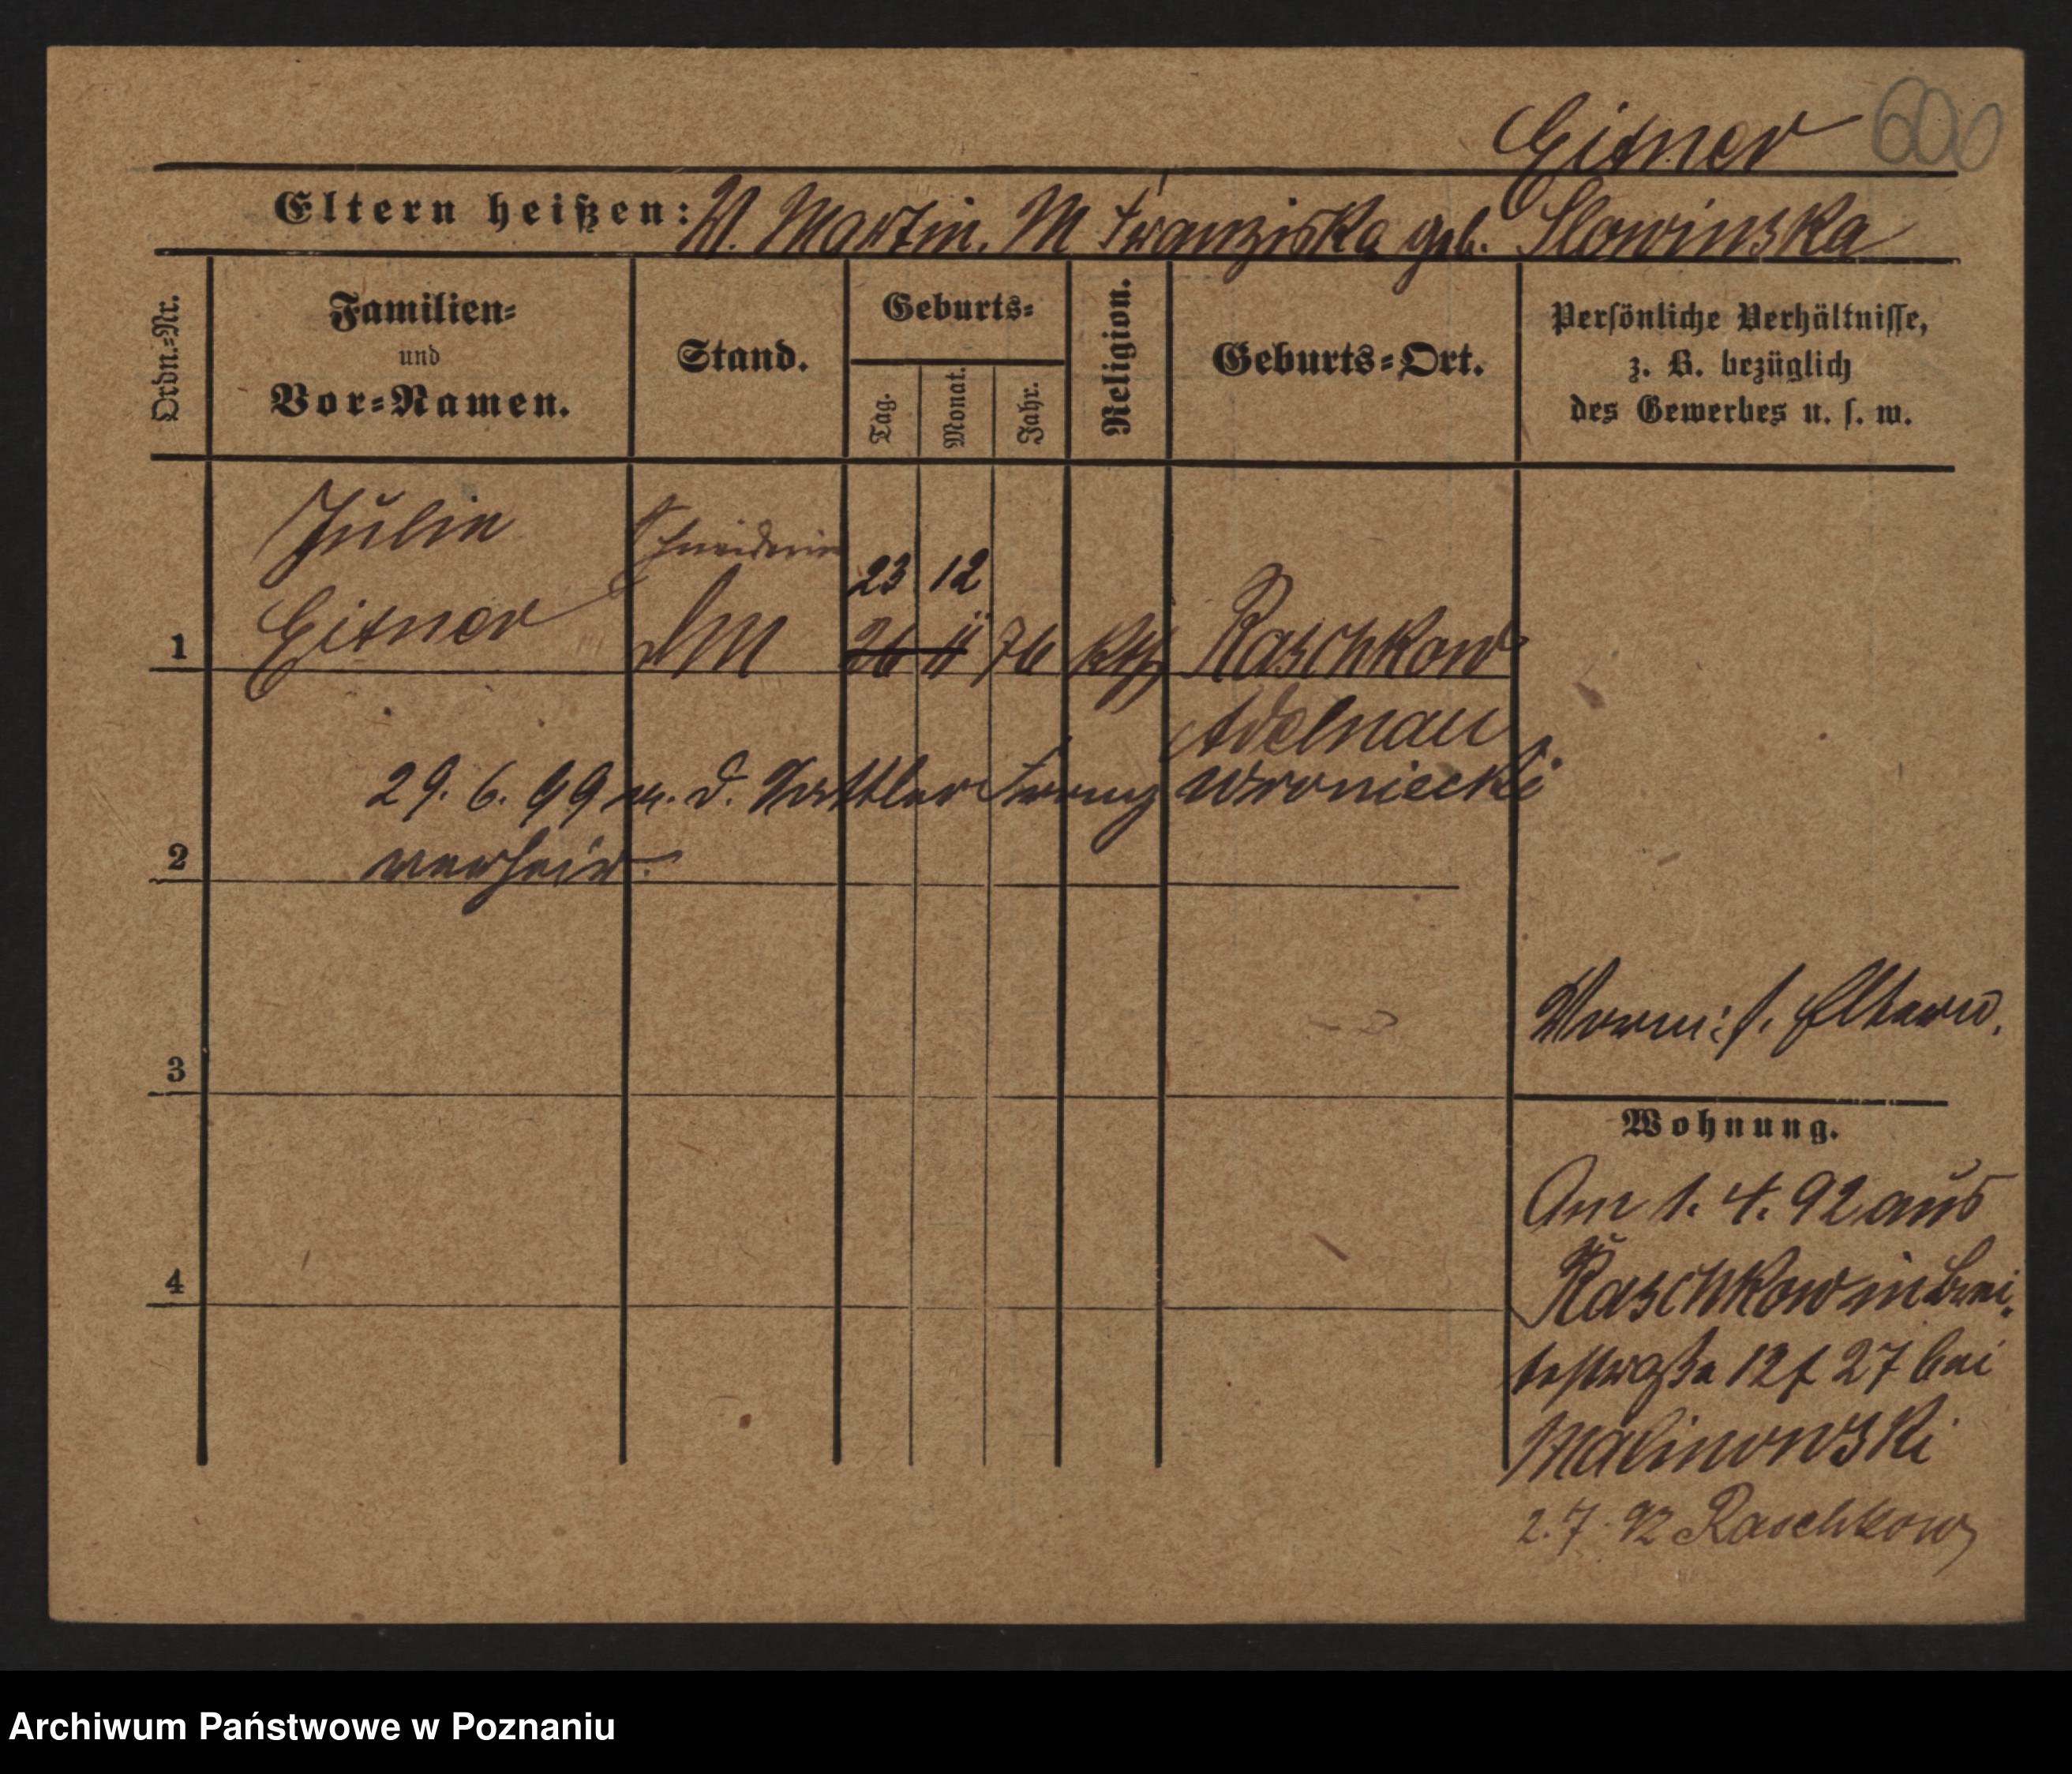 Eitner 600
Eltern heißen: V. Martin. M Franziska geb. Slowinska
Ordn.=Nr.
Familien=
und
Vor=Namen.
Stand.
Geburts=
Tag.
Monat.
Jahr.
Religion.
Geburts=Ort.
Persönliche Verhältnisse,
z. B. bezüglich
des Gewerbes u. s. w.
Julie Schneiderin
23 12
1 Eitner 26 11 76 kth Raschkow
Adelnau
29. 6. 99 m. d. Sattler Franz Wroniecki
2 verheir.
3
4
Vorm: s. Eltern.
Wohnung.
Am 1. 4. 92 aus
Raschkow in Brei-
testraße 12 f 27 bei
Malinowski
2. 7. 92 Raschkow
Archiwum Państwowe w Poznaniu